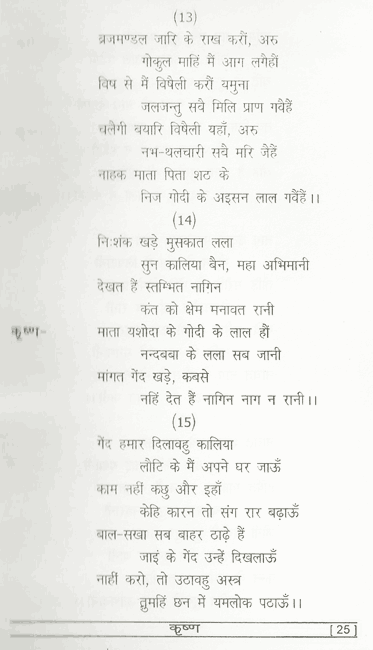 (13)
ब्रजमण्डल जारि के राख करौं, अरु
गोकुल माहिं मैं आग लगैहौं
विष से मैं विषैली करौं यमुना
जलजन्तु सवै मिलि प्राण गवैहैं
चलैगी बयारि विषैली यहाँ, अरु
नभ-थलचारी सवै मरि जैहैं
नाहक माता पिता शठ के
निज गोदी के अइसन लाल गवैंहैं।।
(14)
निःशंक खड़े मुसकात लला
सुन कालिया वैन, महा अभिमानी
देखत हैं स्तम्भित नागिन
कंत को क्षेम मनावत रानी
कृष्ण- माता यशोदा के गोदी के लाल हौं
नन्दबबा के लला सब जानी
मांगत गेंद खड़े, कबसे
नहिं देत हैं नागिन नाग न रानी।।
(15)
गेंद हमार दिलावहु कालिया
लौटि के मैं अपने घर जाऊँ
काम नहीं कछु और इहाँ
केहि कारन तो संग रार बढ़ाऊँ
बाल-सखा सब बाहर ठाढ़े हैं
जाइं के गेंद उन्हें दिखलाऊँ
नाहीं करो, तो उठावहु अस्त्र
तुमहिं छन में यमलोक पठाऊँ।।
कृष्ण [ 25 ]